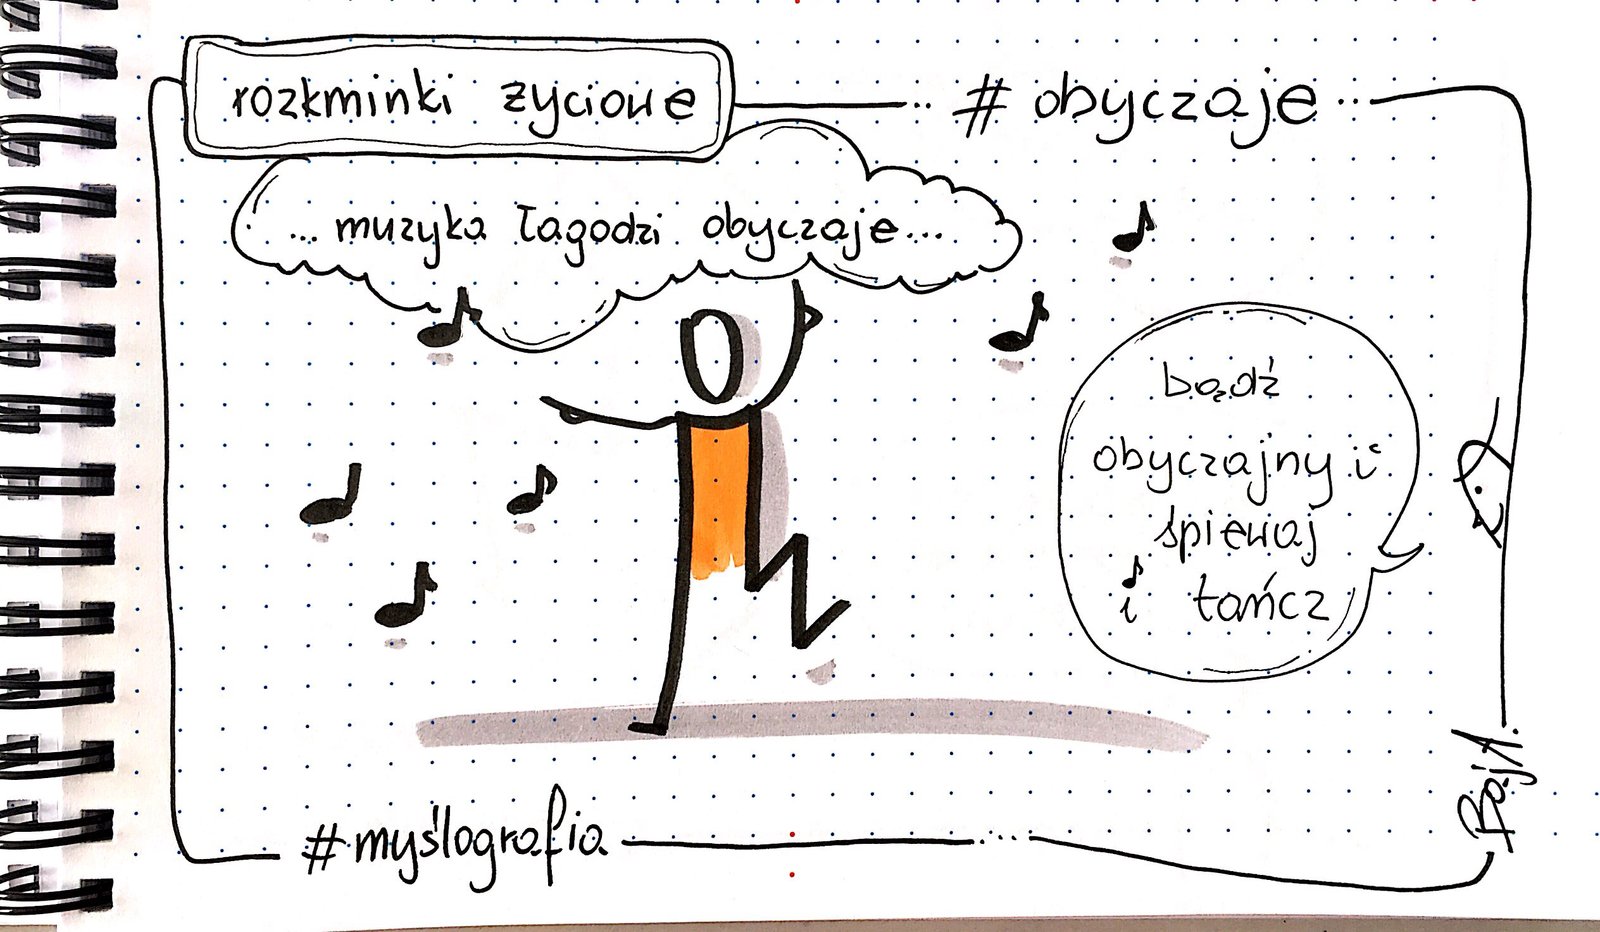 rozkminki życiowe
#obyczaje
... muzyka łagodzi obyczaje...
bądź
obyczajny i
śpiewaj
i tańcz
#myślografia